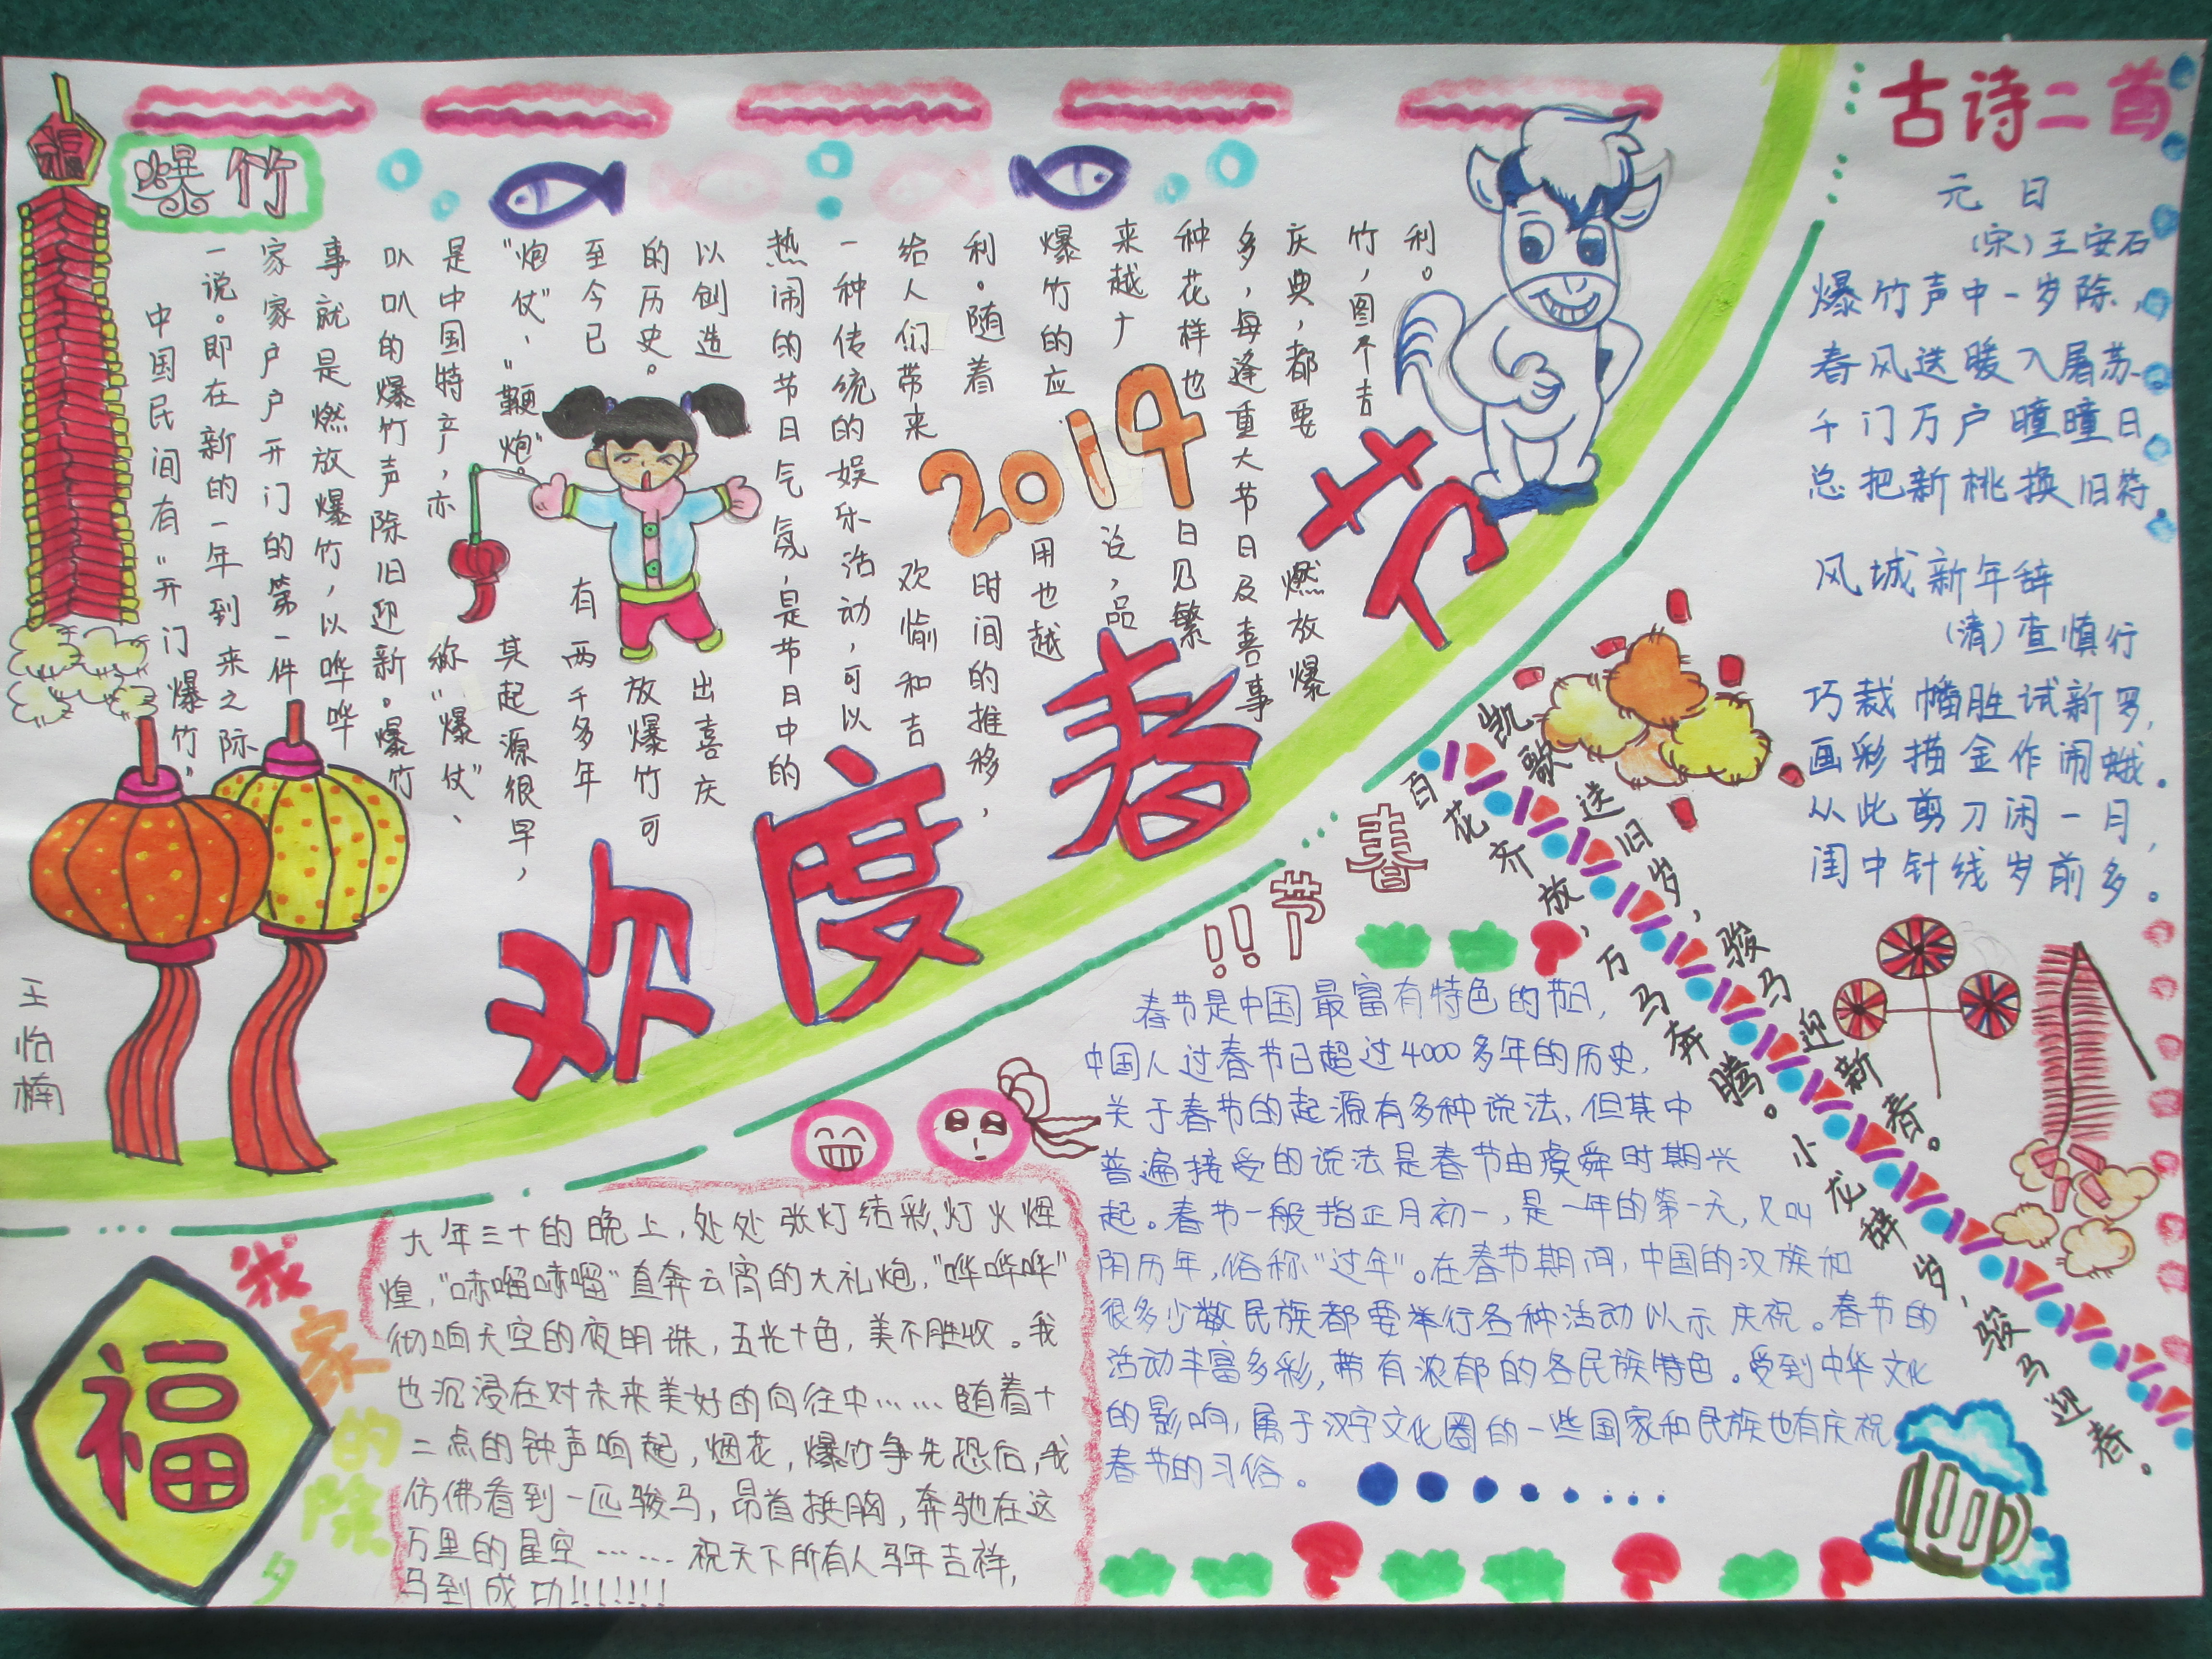 爆竹
中国民间有"开门爆竹"
一说。即在新的一年到来之际
家家户户开门的第一件
事就是燃放爆竹，以哗哗
叭叭的爆竹声除旧迎新。爆竹
是中国特产，亦称"爆仗"、
"炮仗"、"鞭炮"。其起源很早，
至今已有两千多年
的历史。放爆竹可
以创造出喜庆
热闹的节日气氛，是节日中的
一种传统的娱乐活动，可以
给人们带来欢愉和吉
利。随着时间的推移，
爆竹的应用也越
来越广泛，品
种花样也日见繁
多，每逢重大节日及喜事
庆典，都要燃放爆
竹，图个吉
利。
福
2014
欢度春节
王怡楠
古诗二首
元日
（宋）王安石
爆竹声中一岁除，
春风送暖入屠苏
千门万户曈曈日
总把新桃换旧符
风城新年辞
（清）查慎行
巧裁幡胜试新罗，
画彩描金作闹蛾。
从此剪刀闲一月，
闺中针线岁前多。
凯歌送旧岁，骏马迎新春。
百花齐放，万马奔腾。小龙辞岁，骏马迎春。
春节!!
春节是中国最富有特色的节日，
中国人过春节已超过4000多年的历史，
关于春节的起源有多种说法，但其中
普遍接受的说法是春节由虞舜时期兴
起。春节一般指正月初一，是一年的第一天，又叫
阴历年，俗称"过年"。在春节期间，中国的汉族和
很多少数民族都要举行各种活动以示庆祝。春节的
活动丰富多彩，带有浓郁的各民族特色。受到中华文化
的影响，属于汉字文化圈的一些国家和民族也有庆祝
春节的习俗。
我家的除夕
福
大年三十的晚上，处处张灯结彩，灯火煌
煌，"哧嘣哧嘣"直奔云霄的大礼炮，"哗哗哗"
彻响天空的夜明珠，五光十色，美不胜收。我
也沉浸在对未来美好的向往中……随着十
二点的钟声响起，烟花，爆竹争先恐后，我
仿佛看到一匹骏马，昂首挺胸，奔驰在这
万里的星空……祝天下所有人马年吉祥，
马到成功!!!!!!!